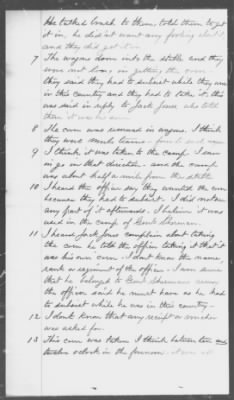 He talked back to them, told them to get
it in, he did not want any fooling about it
and they did get it in
7 The wagons down into the stable and they
were not long in getting the corn
they said they had to subsist while they were
in this country and they had to take it. this
was said in reply to Jack Jones who told
them it was his corn.
8 The corn was removed in wagons. I think
they were mule teams
9 I think it was taken to the camp. I saw
in go in that direction. and the camp
was about half a mile from the stable
10 I heard the officer say they wanted the corn
because they had to subsist. I did not see
any part of it afterwards. I believe it was
used in the camp of Genl Sherman.
11 I heard Jack Jones complain about taking
the corn he told the officer taking it that it
was his own corn. I dont know the name,
rank or regiment of the officer. I am sure
that he belonged to Genl Sherman's army
the officer said he must have as he had
to subsist while he was in this country.
12 I dont know that any receipt or voucher
was asked for.
13 This corn was taken I think between ten and
twelve o'clock in the forenoon. it was